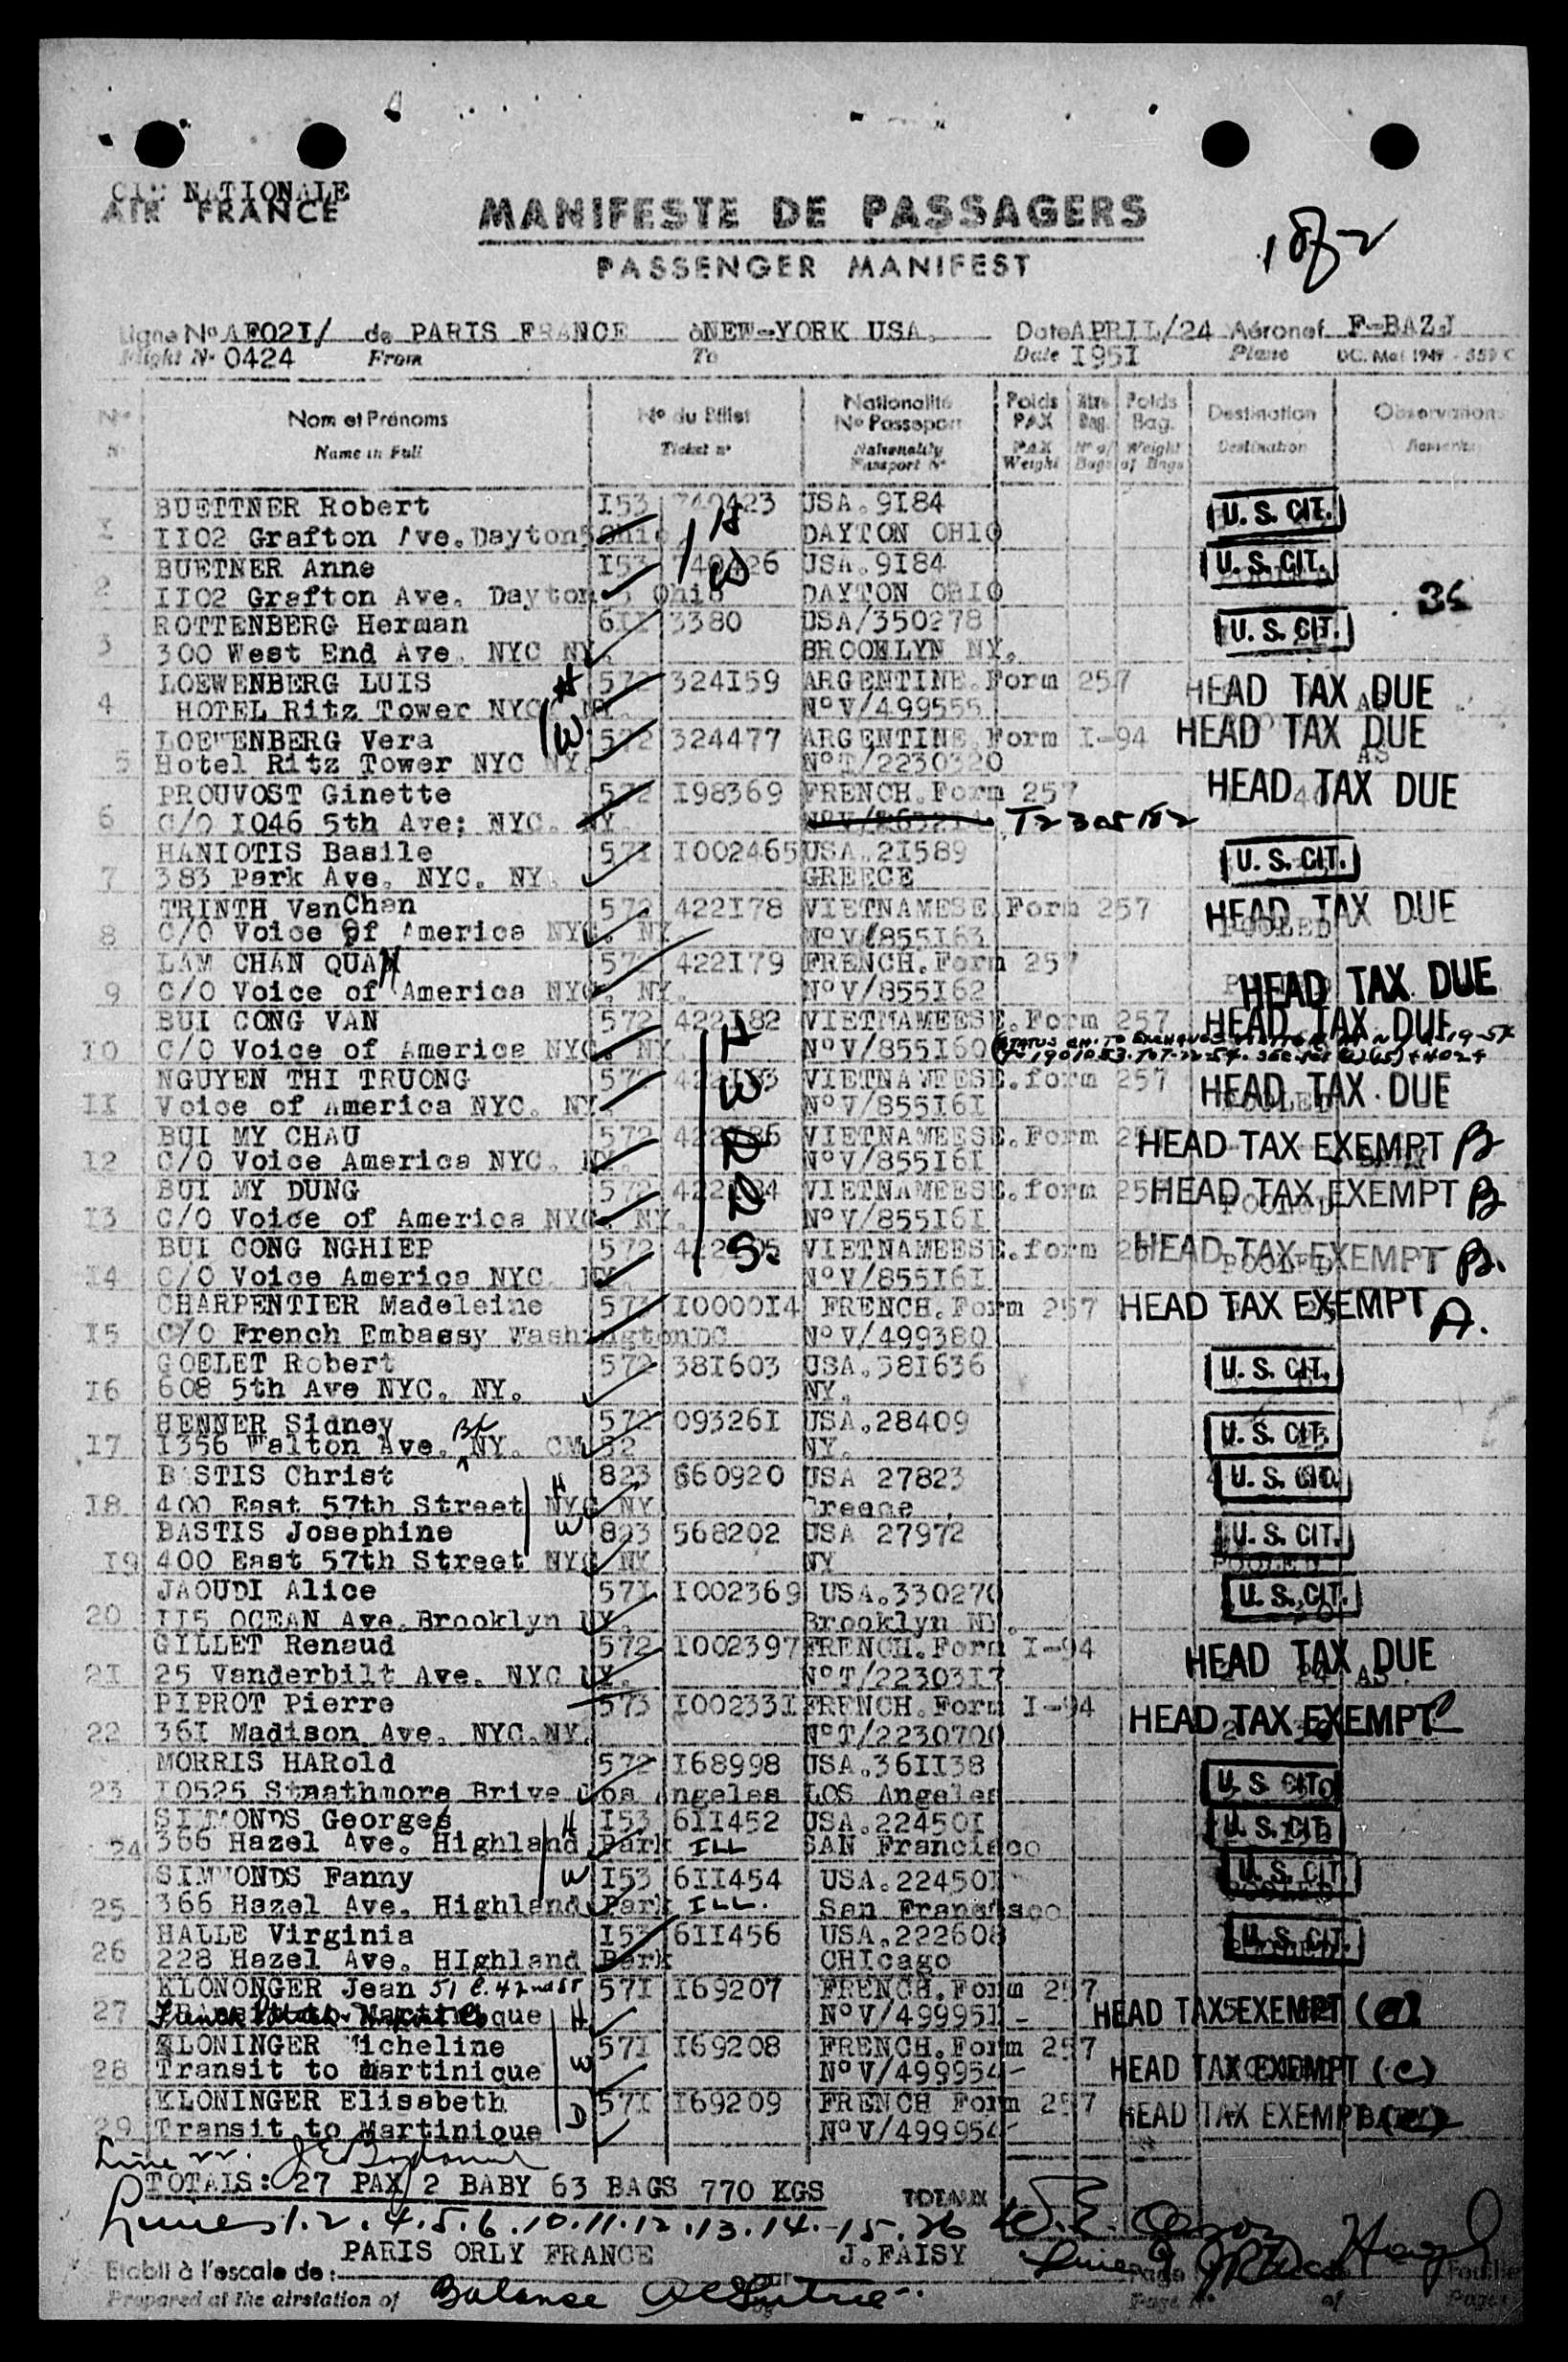 CIE NATIONALE
AIR FRANCE
MANIFESTE DE PASSAGERS
PASSENGER MANIFEST
Ligne Nº AF02I/ de PARIS FRANCE à NEW-YORK USA. Date APRIL/24 Aéronef F-BAZJ
Flight Nº 0424 From To Date I95I Plane DC. Mai 1949 - 559 C
Nº Nom et Prénoms Nº du Billet Nationalité Nº Passeport Poids PAX Nbre Bag. Poids Bag. Destination Observations
Nº Name in Full Ticket nº Nationality Passport Nº PAX Weight Nº of Bags Weight of Bags Destination Remarks
BUETTNER Robert I53 740423 USA.9I84 U. S. CIT.
I II02 Grafton Ave.Dayton5Ohio H DAYTON OHIO
BUETNER Anne I53 740426 USA.9I84 U. S. CIT.
2 II02 Grafton Ave. Dayton 5 Ohio W DAYTON OHIO
ROTTENBERG Herman 6II 3380 USA/350278 U. S. CIT.
3 300 West End Ave. NYC NY. BROOKLYN NY.
LOEWENBERG LUIS H 572 324I59 ARGENTINE.Form 257 HEAD TAX DUE
4 HOTEL Ritz Tower NYC NY. NºV/499555
LOEWENBERG Vera W. 572 324477 ARGENTINE Form I-94 HEAD TAX DUE
5 Hotel Ritz Tower NYC NY. NºT/2230320 AS
PROUVOST Ginette 572 I98369 FRENCH.Form 257 HEAD TAX DUE
6 C/O I046 5th Ave; NYC. NY. T2305182
HANIOTIS Basile 57I I002465 USA.2I589 U. S. CIT.
7 383 Park Ave. NYC. NY. GREECE
TRINTH VanChan 572 422I78 VIETNAMESE.Form 257 HEAD TAX DUE
8 C/O Voice Of America NYC. NY. NºV/855I63 POOLED
LAM CHAN QUAN 572 422I79 FRENCH.Form 257 HEAD TAX DUE
9 C/O Voice of America NYC. NY. NºV/855I62
BUI CONG VAN 572 422I82 VIETNAMEESE.Form 257 HEAD TAX DUE
I0 C/O Voice of America NYC. NY. H NºV/855I60
NGUYEN THI TRUONG 572 422I83 VIETNAMEESE.form 257 HEAD TAX DUE
II Voice of America NYC. NY. W NºV/855I6I POOLED
BUI MY CHAU 572 422I86 VIETNAMEESE.Form 257 HEAD TAX EXEMPT B
I2 C/O Voice America NYC. NY. D NºV/855I6I
BUI MY DUNG 572 422I84 VIETNAMEESE.form 257 HEAD TAX EXEMPT B
I3 C/O Voice of America NYC. NY. D NºV/855I6I POOLED
BUI CONG NGHIEP 572 422I85 VIETNAMEESE.form 257 HEAD TAX EXEMPT B.
I4 C/O Voice America NYC. NY. S. NºV/855I6I POOLED
CHARPENTIER Madeleine 57I I0000I4 FRENCH.Form 257 HEAD TAX EXEMPT A.
I5 C/O French Embassy WashingtonDC NºV/499380
GOELET Robert 572 38I603 USA.38I636 U. S. CIT.
I6 608 5th Ave NYC. NY. NY.
HENNER Sidney 572 09326I USA.28409 U. S. CIT.
I7 I356 Walton Ave. BX NY. CM 52 NY.
BASTIS Christ H 823 560920 USA 27823 U. S. CIT.
I8 400 East 57th Street NYC NY Greece
BASTIS Josephine W 823 568202 USA 27972 U. S. CIT.
I9 400 East 57th Street NYC NY NY POOLED
JAOUDI Alice 57I I002369 USA.330270 U. S. CIT.
20 II5 OCEAN Ave.Brooklyn NY. Brooklyn NY.
GILLET Renaud 572 I002397 FRENCH.Form I-94 HEAD TAX DUE
2I 25 Vanderbilt Ave. NYC NY. NºT/22303I7 AS
PIPROT Pierre 573 I00233I FRENCH.Form I-94 HEAD TAX EXEMPT
22 36I Madison Ave. NYC.NY. NºT/2230700
MORRIS HARold 572 I68998 USA.36II38 U. S. CIT.
23 I0525 Strathmore Brive Los Angeles LOS Angeles
SIMMONDS Georges H I53 6II452 USA.22450I U. S. CIT.
24 366 Hazel Ave. Highland Park ILL SAN Francisco
SIMMONDS Fanny W I53 6II454 USA.22450I U. S. CIT
25 366 Hazel Ave. Highland Park ILL. San Francisco POOLED
HALLE Virginia I53 6II456 USA.222608 U. S. CIT.
26 228 Hazel Ave. HIghland Park CHIcago
KLONONGER Jean 51 E. 42nd ST 57I I69207 FRENCH.Form 257 HEAD TAX EXEMPT
27 H NºV/49995I -
KLONINGER Micheline W 57I I69208 FRENCH.Form 257 HEAD TAX EXEMPT (C)
28 Transit to Martinique NºV/499954-
KLONINGER Elisabeth D 57I I69209 FRENCH Form 257 HEAD TAX EXEMPT
29 Transit to Martinique NºV/499954-
TOTALS: 27 PAX/ 2 BABY 63 BAGS 770 KGS TOTAUX
Lines 1.2.4.5.6.10.11.12.13.14.-15.26
PARIS ORLY FRANCE J.FAISY
Etabli à l'escale de :
Prepared at the airstation of Balance Page Nº of Pages